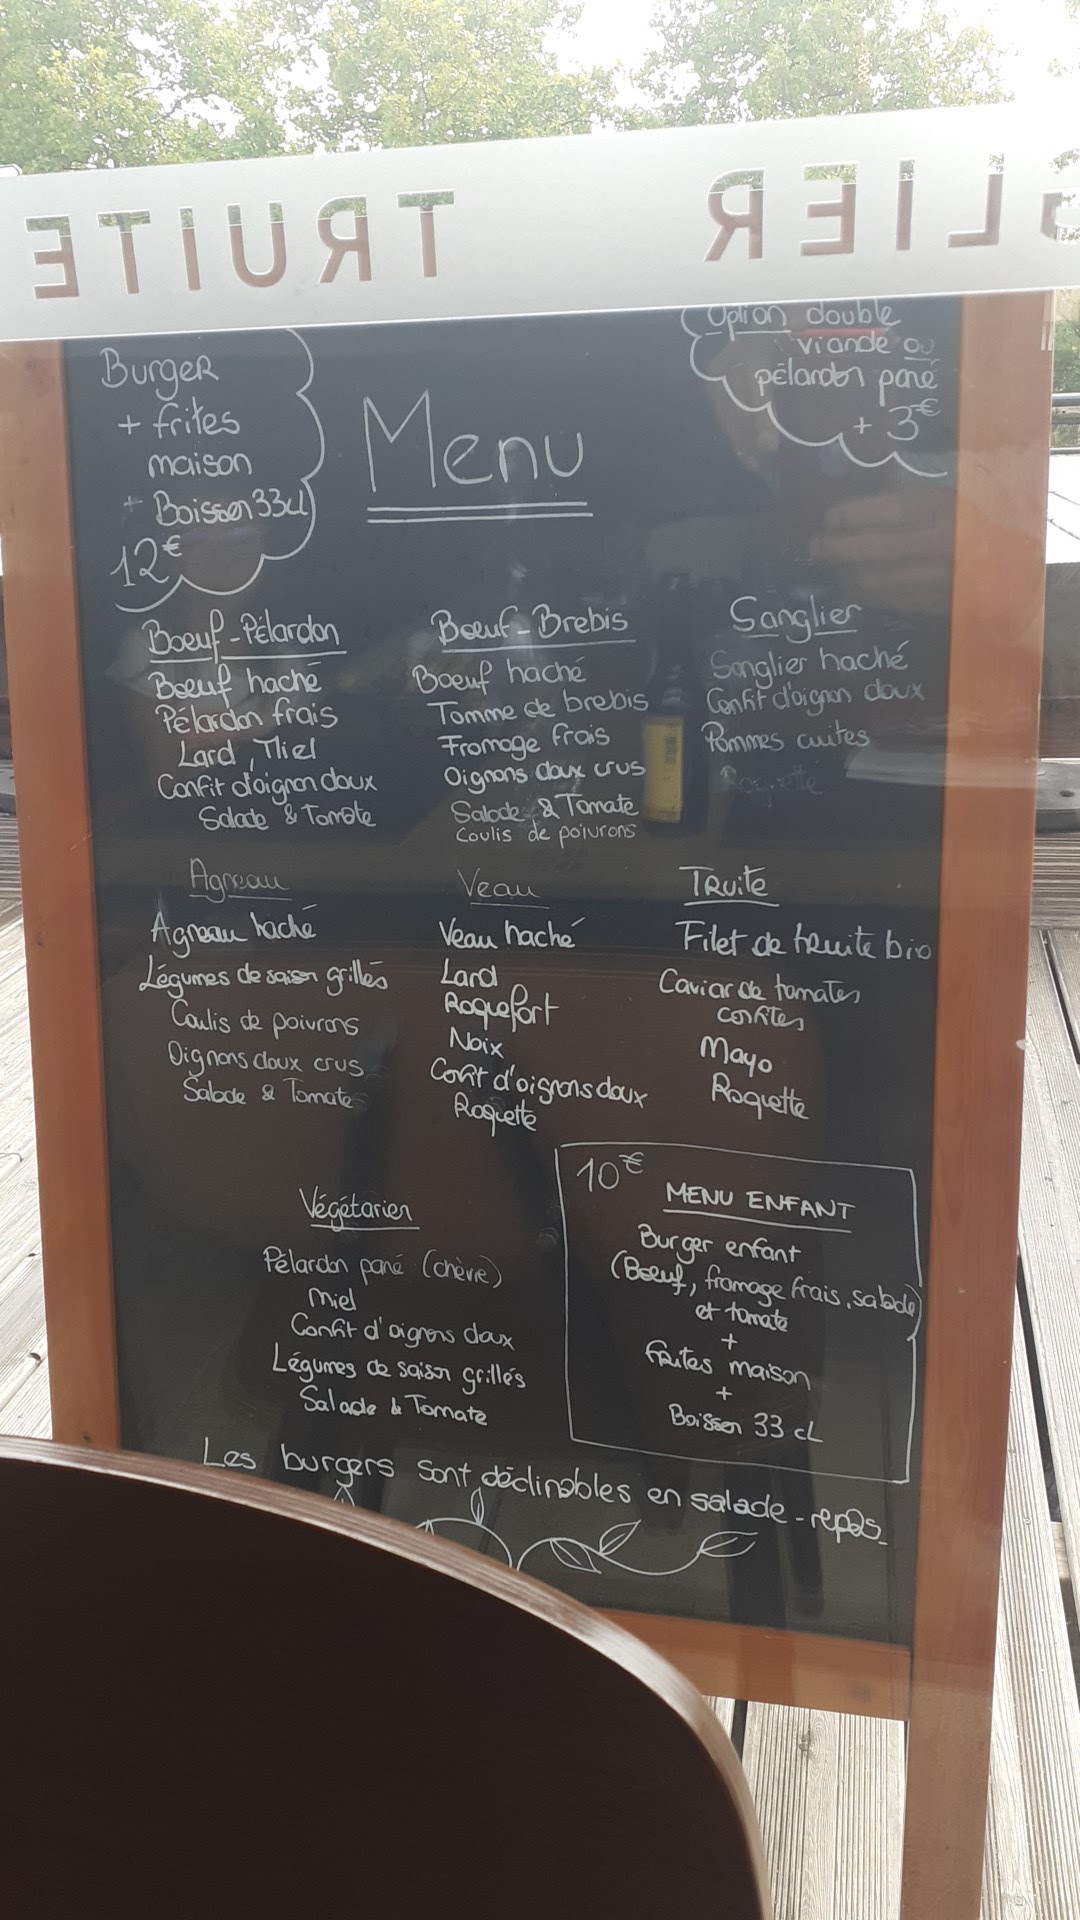 TRUITE
GLIER
Burger
+ frites
maison
+ Boisson 33cl
12€
Menu
Option double
viande ou
pélardon pané
+ 3€
Boeuf-Pélardon
Boeuf haché
Pélardon frais
Lard, Miel
Confit d'oignon doux
Salade & Tomate
Boeuf-Brebis
Boeuf haché
Tomme de brebis
Fromage frais
Oignons doux crus
Salade & Tomate
Coulis de poivrons
Sanglier
Sanglier haché
Confit d'oignon doux
Pommes cuites
Roquette
Agneau
Agneau haché
Légumes de saison grillés
Coulis de poivrons
Oignons doux crus
Salade & Tomate
Veau
Veau haché
Lard
Roquefort
Noix
Confit d'oignons doux
Roquette
Truite
Filet de truite bio
Caviar de tomates
confites
Mayo
Roquette
Végétarien
Pélardon pané (chèvre)
Miel
Confit d'oignons doux
Légumes de saison grillés
Salade & Tomate
10€
MENU ENFANT
Burger enfant
(Boeuf, fromage frais, salade)
et tomate
+
Frites maison
+
Boisson 33 cL
Les burgers sont déclinables en salade-repas.